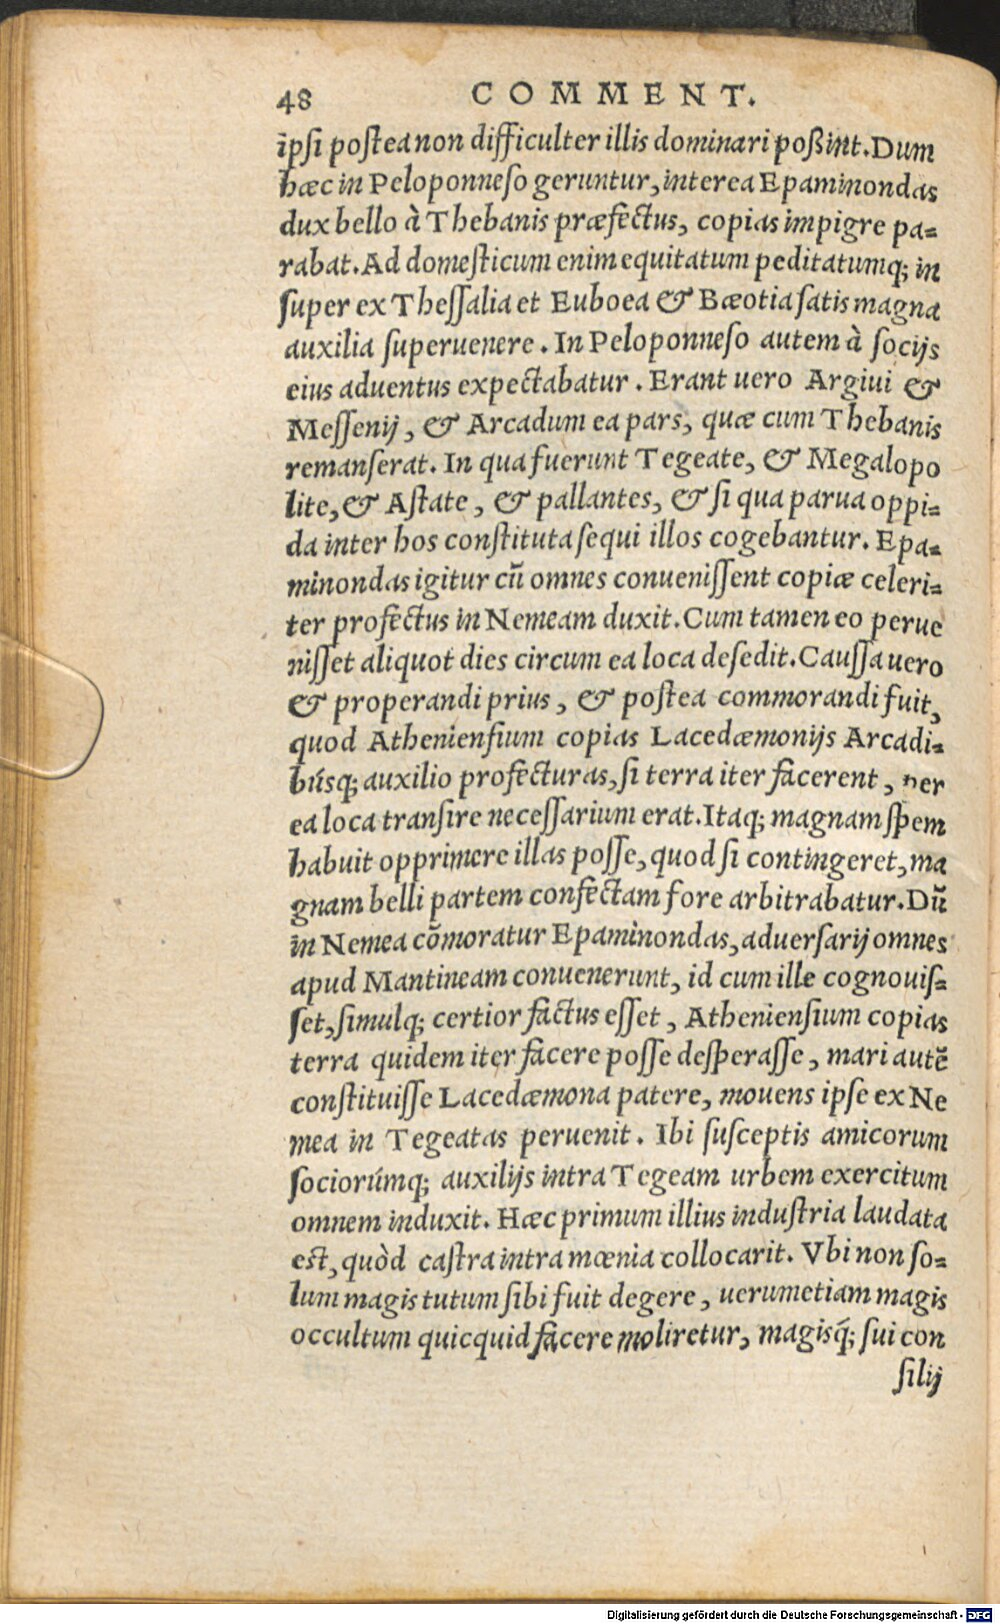 48 COMMENT.
ipſi poſtea non difficulter illis dominari poßint. Dum
hæc in Peloponneſo geruntur, interea Epaminondas
dux bello à Thebanis præfectus, copias impigre pa=
rabat. Ad domeſticum enim equitatum peditatumq; in
ſuper ex Theſſalia et Euboea & Bæotia ſatis magna
auxilia ſuperuenere. In Peloponneſo autem à ſocijs
eius aduentus expectabatur. Erant uero Argiui &
Meſſenij, & Arcadum ea pars, quæ cum Thebanis
remanſerat. In qua fuerunt Tegeate, & Megalopo
lite, & Aſtate, & pallantes, & ſi qua parua oppi=
da inter hos conſtituta ſequi illos cogebantur. Epa=
minondas igitur cũ omnes conueniſſent copiæ celeri=
ter profectus in Nemeam duxit. Cum tamen eo perue
niſſet aliquot dies circum ea loca deſedit. Cauſſa uero
& properandi prius, & poſtea commorandi fuit,
quod Athenienſium copias Lacedæmonijs Arcadi=
búsq; auxilio profecturas, ſi terra iter facerent, per
ea loca tranſire neceſſarium erat. Itaq; magnam ſpem
habuit opprimere illas poſſe, quod ſi contingeret, ma
gnam belli partem confectam fore arbitrabatur. Dũ
in Nemea cõmoratur Epaminondas, aduerſarij omnes
apud Mantineam conuenerunt, id cum ille cognouiſ=
ſet, ſimulq; certior factus eſſet, Athenienſium copias
terra quidem iter facere poſſe deſperaſſe, mari autẽ
conſtituiſſe Lacedæmona patere, mouens ipſe ex Ne
mea in Tegeatas peruenit. Ibi ſuſceptis amicorum
ſociorúmq; auxilijs intra Tegeam urbem exercitum
omnem induxit. Hæc primum illius induſtria laudata
eſt, quòd caſtra intra mœnia collocarit. Vbi non ſo=
lum magis tutum ſibi fuit degere, uerumetiam magis
occultum quicquid facere moliretur, magisq́; ſui con
ſilij
Digitalisierung gefördert durch die Deutsche Forschungsgemeinschaft - DFG